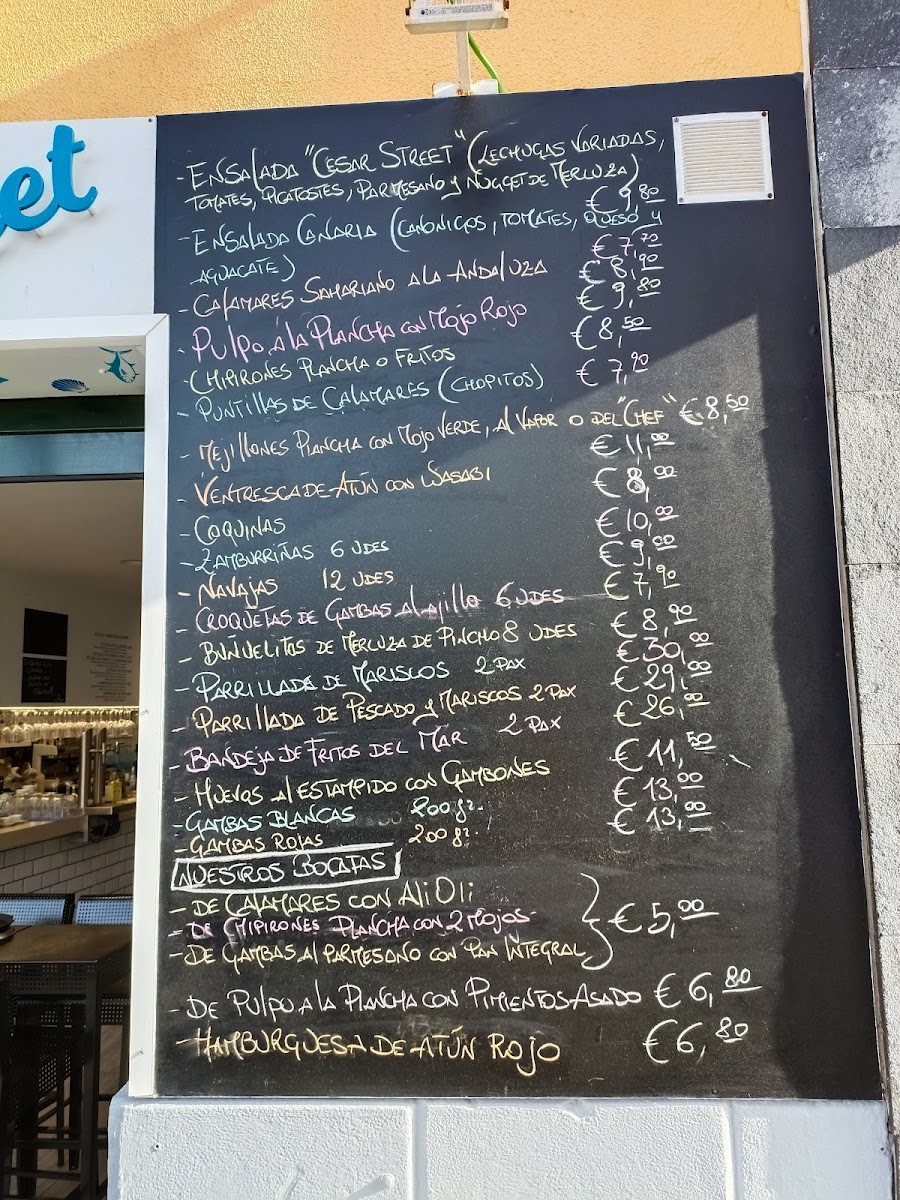 et
- ENSALADA "CESAR STREET" (LECHUGAS VARIADAS,
TOMATES, PICATOSTES, PARMESANO y NUGGET DE MERLUZA) € 9,80
- ENSALADA CANARIA (CANONIGOS, TOMATES, QUESO y
AGUACATE) € 7,70
- CALAMARES SAHARIANO A LA ANDALUZA € 8,90
- PULPO A LA PLANCHA CON MOJO ROJO € 9,80
- CHIPIRONES PLANCHA O FRITOS € 8,50
- PUNTILLAS DE CALAMARES (CHOPITOS) € 7,90
- MEJILLONES PLANCHA CON MOJO VERDE, AL VAPOR O DEL "CHEF" € 8,50
- VENTRESCA DE ATÚN CON WASABI € 11,00
- COQUINAS € 8,00
- ZAMBURRIÑAS 6 UDES € 10,00
- NAVAJAS 12 UDES € 9,00
- CROQUETAS DE GAMBAS AL AJILLO 6 UDES € 7,90
- BUÑUELITOS DE MERLUZA DE PINCHO 8 UDES € 8,90
- PARRILLADA DE MARISCOS 2 PAX € 30,00
- PARRILLADA DE PESCADO y MARISCOS 2 PAX € 29,00
- BANDEJA DE FRITOS DEL MAR 2 PAX € 26,00
- HUEVOS AL ESTAMPIDO CON GAMBONES € 11,50
- GAMBAS BLANCAS 200 gr. € 13,00
- GAMBAS ROJAS 200 gr. € 13,00
NUESTROS BOCATAS
- DE CALAMARES CON ALI OLI
- DE CHIPIRONES PLANCHA CON 2 MOJOS € 5,00
- DE GAMBAS AL PARMESANO CON PAN INTEGRAL
- DE PULPO A LA PLANCHA CON PIMIENTOS ASADO € 6,80
- HAMBURGUESA DE ATÚN ROJO € 6,80